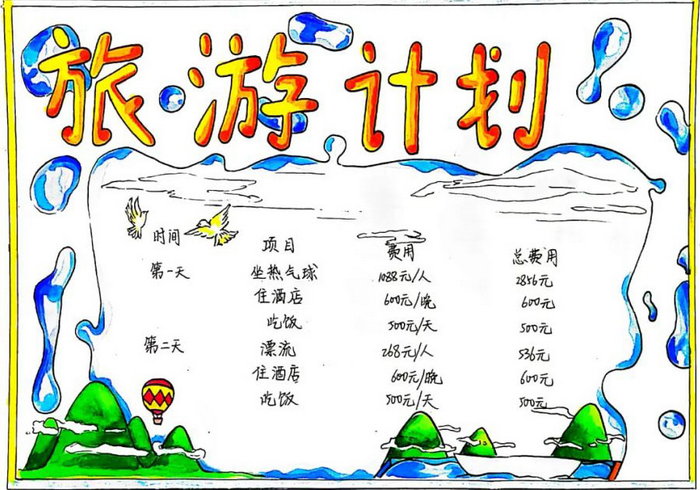 旅游计划
时间 项目 费用 总费用
第一天 坐热气球 1088元/人 2856元
住酒店 600元/晚 600元
吃饭 500元/天 500元
第二天 漂流 268元/人 536元
住酒店 600元/晚 600元
吃饭 500元/天 500元